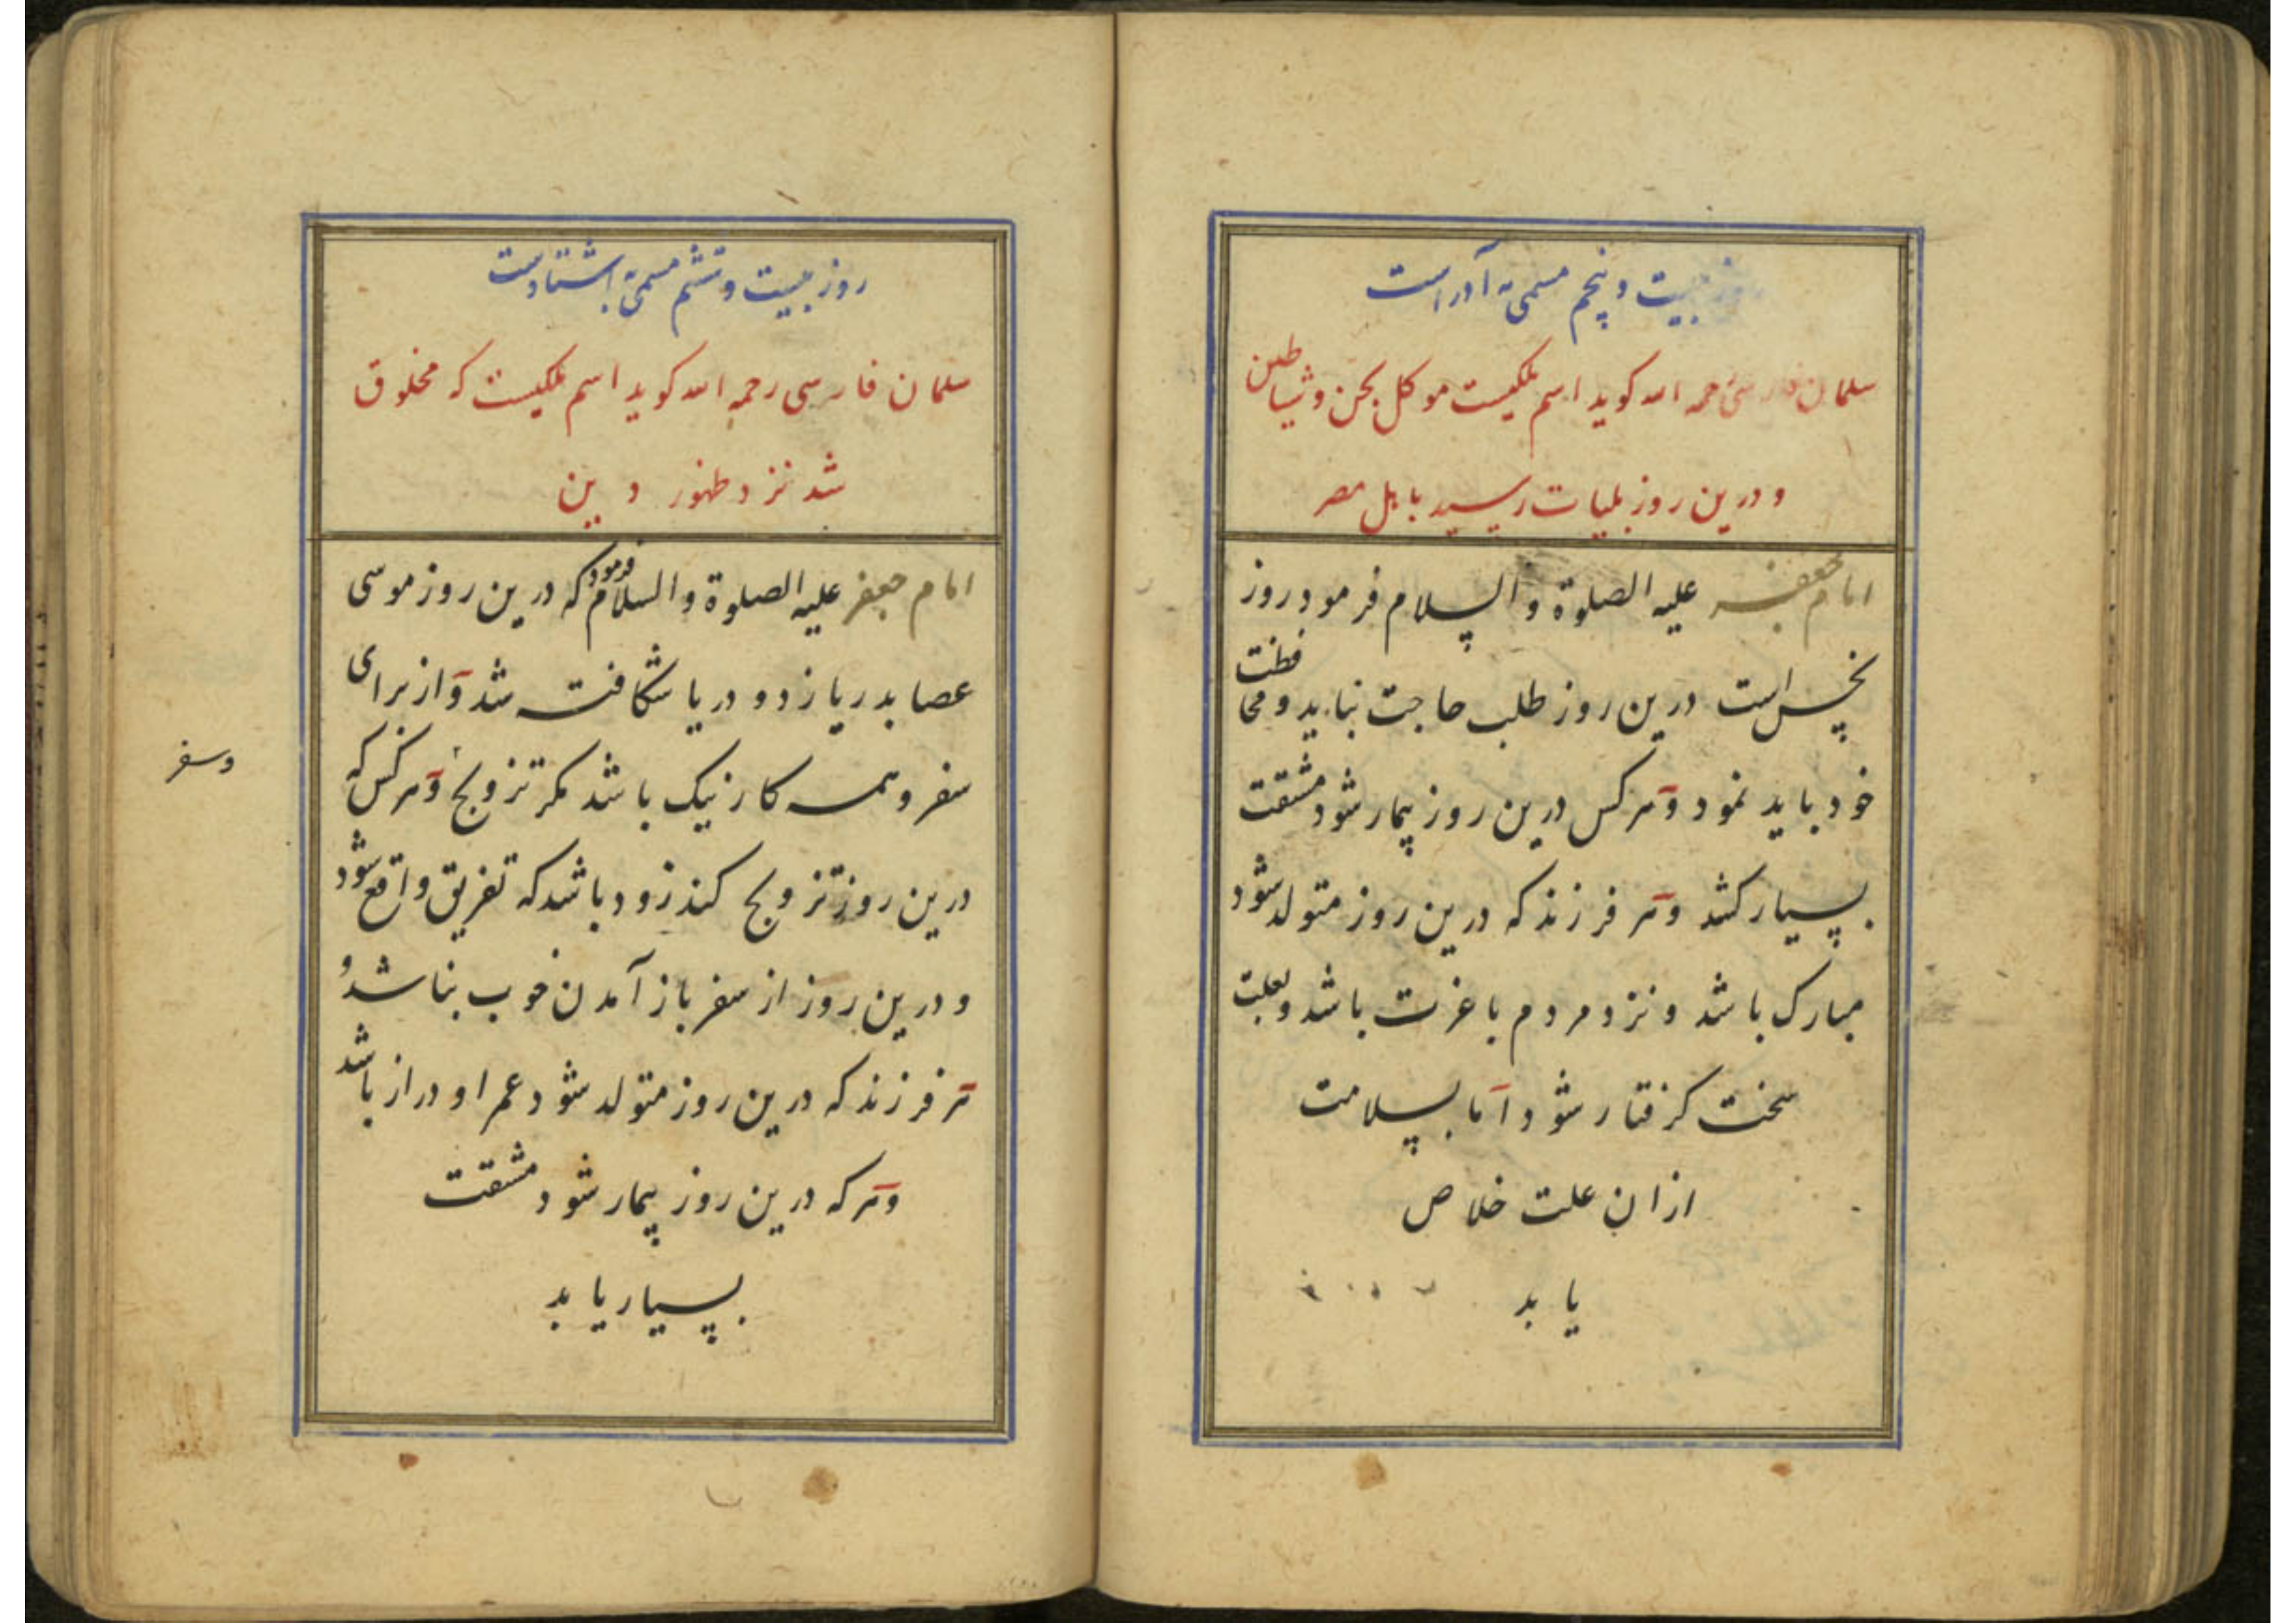 روز بیست و پنجم مسمی به آدر است
سلمان فارسی رحمه الله کوید اسم ملکیست موکل بجن و شیاطین
و درین روز بلیات رسید باهل مصر
امام جعفر علیه الصلوة و السلام فرمود روز
نحس است درین روز طلب حاجت نباید و محافظت
خود باید نمود و هر کس درین روز بیمار شود مشقت
بسیار کشد و هر فرزند که درین روز متولد شود
مبارک باشد و نزد مردم با عزت باشد و بعلت
سخت کرفتار شود اما بسلامت
از ان علت خلاص
یابد
روز بیست و ششم مسمی به اشتاد است
سلمان فارسی رحمه الله کوید اسم ملکیست که مخلوق
شد نزد ظهور دین
امام جعفر علیه الصلوة و السلام فرمود که درین روز موسی
عصا بدریا زد و دریا شکافته شد و از برای
سفر و همه کار نیک باشد مکر تزویج و هر کس که
درین روز تزویج کند زود باشد که تفریق واقع شود
و درین روز از سفر باز آمدن خوب نباشد و
هر فرزند که درین روز متولد شود عمر او دراز باشد
و هر که درین روز بیمار شود مشقت
بسیار یابد
و سفر